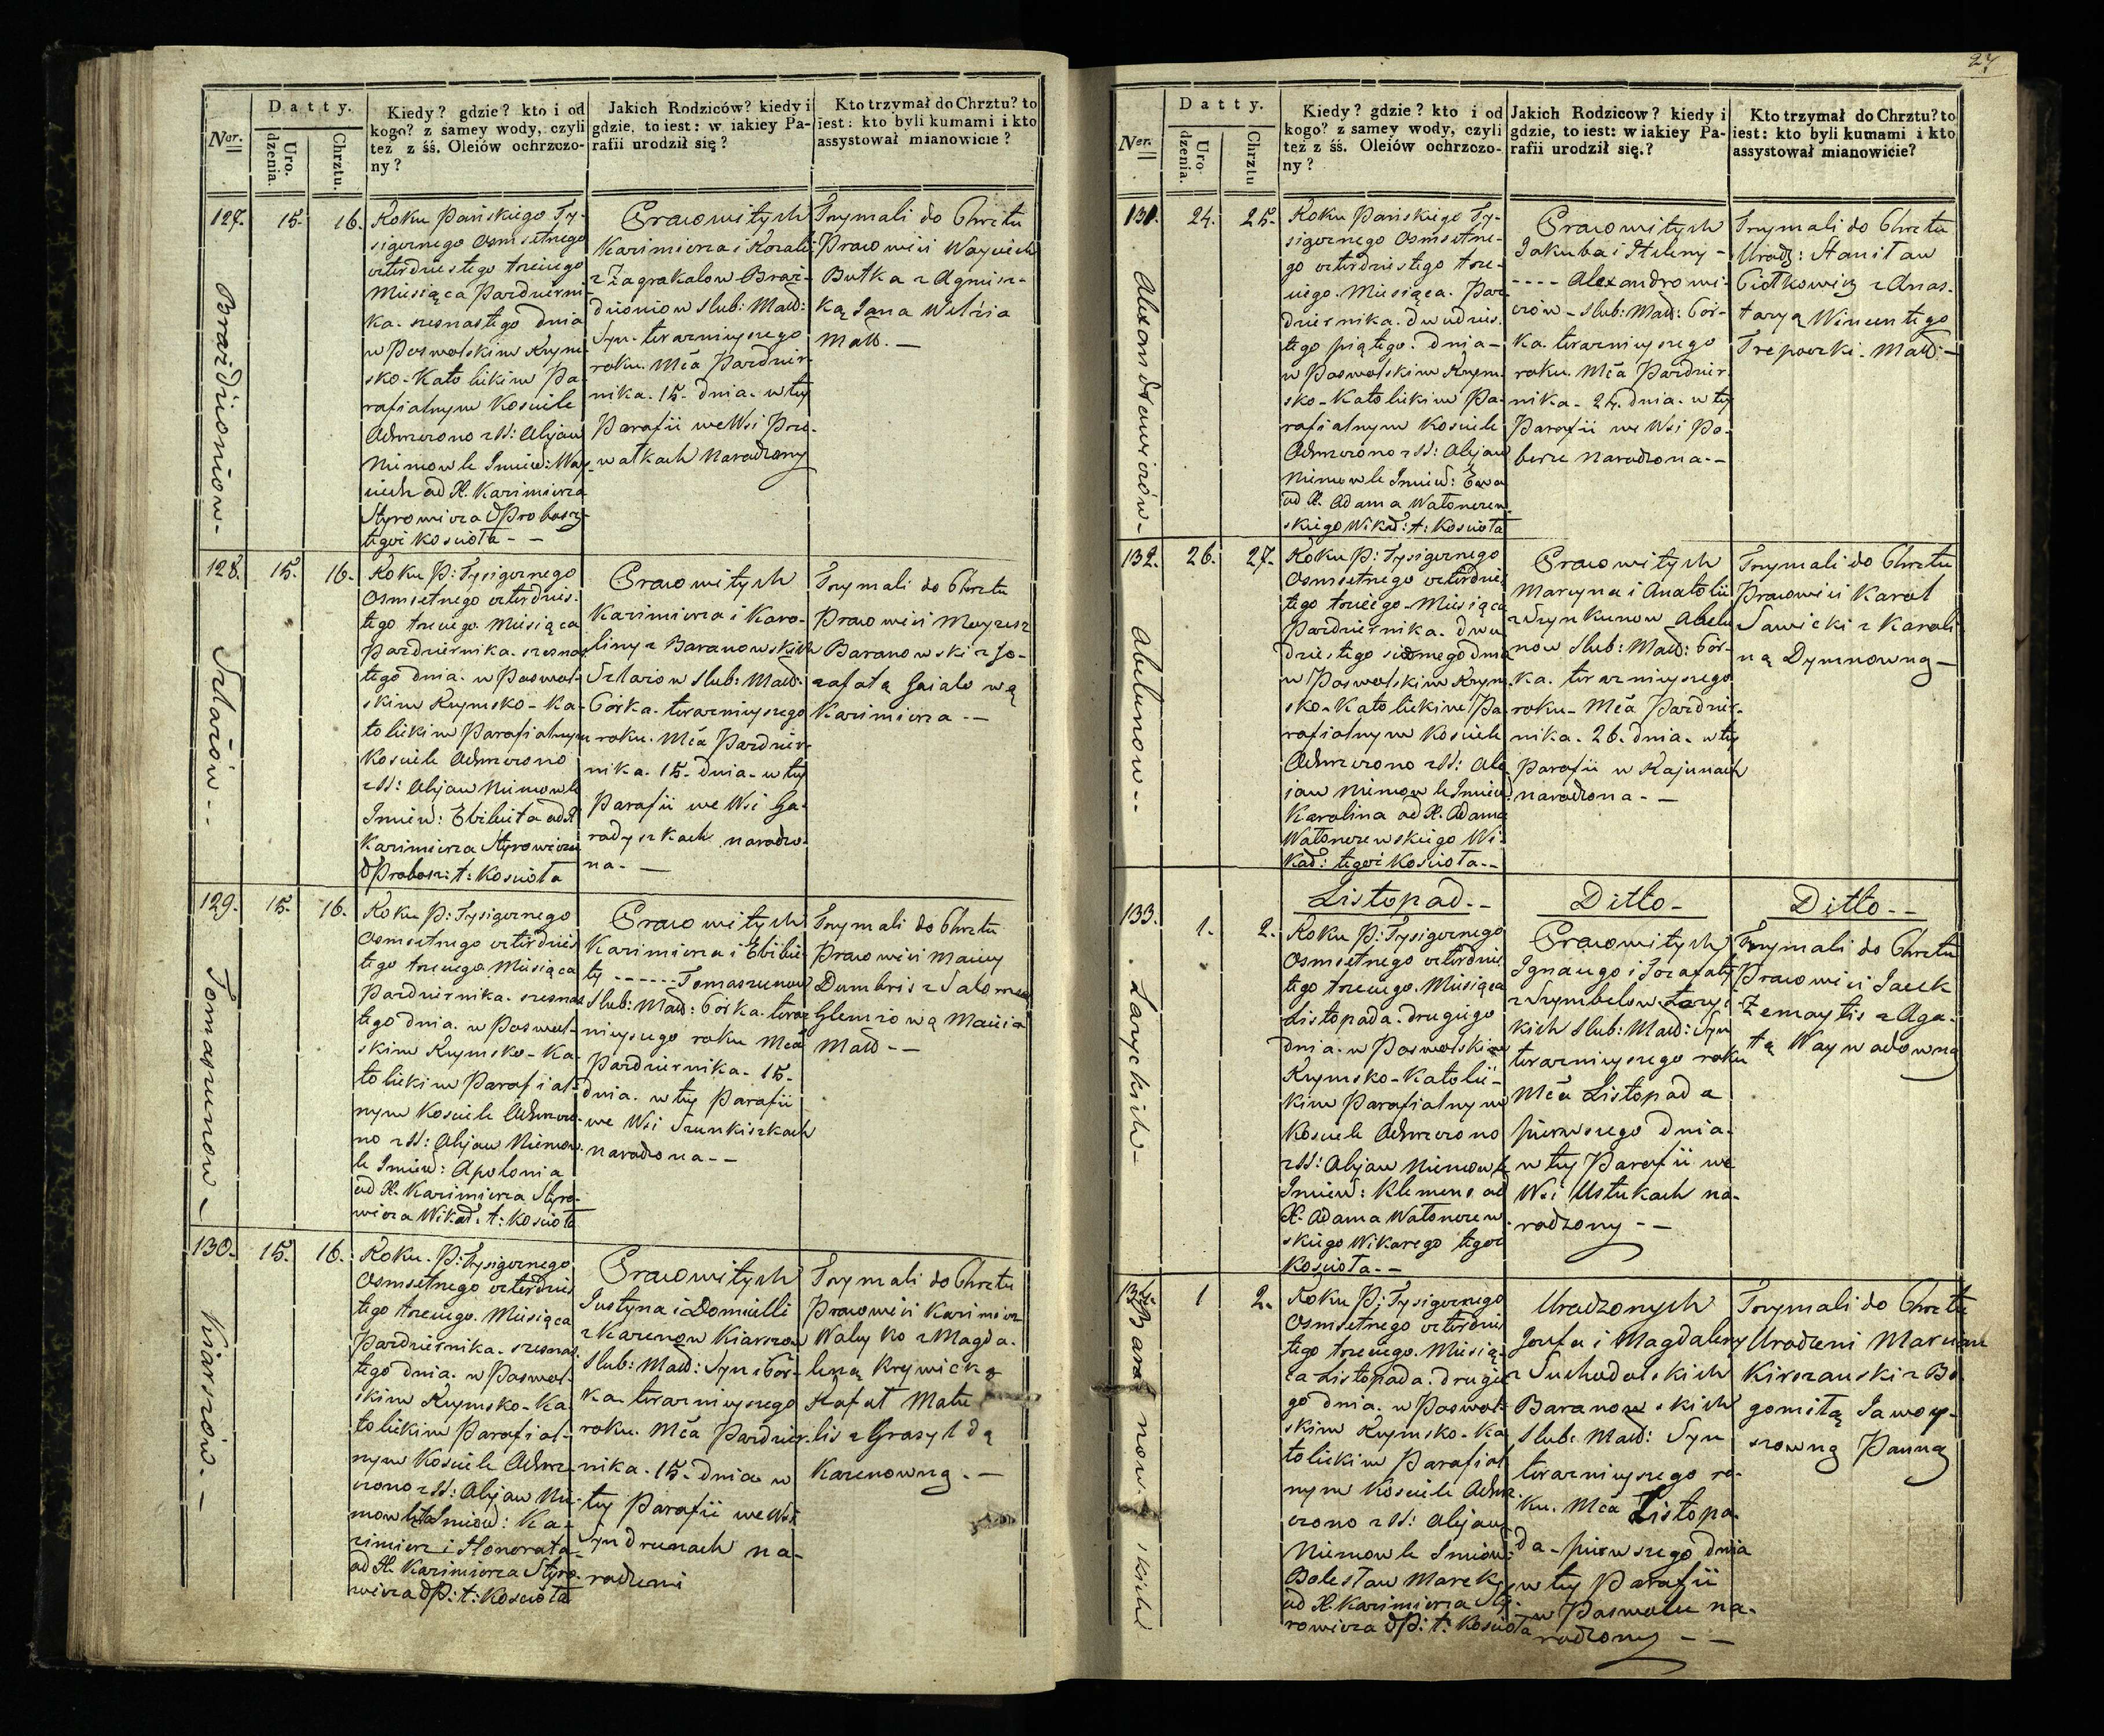 Ner.
Datty.
Uro-
dzenia.
Chrztu.
Kiedy? gdzie? kto i od
kogo? z samey wody, czyli
też z śś. Oleiów ochrzczo-
ny?
Jakich Rodziców? kiedy i
gdzie, to iest: w iakiey Pa-
rafii urodził się?
Kto trzymał do Chrztu? to
iest: kto byli kumami i kto
assystował mianowicie?
127.
15.
16.
Roku Pańskiego Ty-
siącznego Osmsetnego
czterdziestego trzeciego
Miesiąca Pazdzierni-
ka szesnastego dnia
w Poswolskim Rzym-
sko-Katolickim Pa-
rafialnym Kosciele
Ochrzczono z SS: Olejow
Niemowle Imied: Woy-
ciech od X. Kazimierza
Styrowicza DProboszcz
tegoż Kosciola - -
Pracowitych
Kazimierza i Rozalii
z Zagrakalow Braź-
dzioniow Slub: Małż:
Syn. teraznieyszego
roku. Mca Pazdzier-
nika. 15. dnia. w tey
Parafii we Wsi Prze-
watkach Narodzony
Trzymali do Chrztu
Pracowici Woyciech
Butka z Agniesz-
ką Jana Welzia
Małż. -
Braździoniow -
128.
15.
16.
Roku P: Tysiącznego
Osmsetnego czterdzies-
tego trzeciego. Miesiąca
Pazdziernika. szesnas-
tego dnia. w Poswol-
skim Rzymsko-Ka-
tolickim Parafialnym
Kosciele Ochrzczono
z SS: Olejow Niemowle
Imied: Elżbieta od X
Kazimierza Styrowicza
DProbosz: t: Kosciola
Pracowitych
Kazimierza i Karo-
liny z Baranowskich
Szlaiow Slub: Małż:
Córka. teraznieyszego
roku. Mca Pazdzier-
nika. 15. dnia. w tey
Parafii we Wsi Ga-
radyszkach narodzo-
na. -
Trzymali do Chrztu
Pracowici Moyzesz
Baranowski z Jo-
zafatą Gaialową
Kazimierza - -
Szlaiów - -
129.
15.
16.
Roku P: Tysiącznego
Osmsetnego czterdzies
tego trzeciego Miesiąca
Pazdziernika. szesnas
tego dnia. w Poswol-
skim Rzymsko-Ka-
tolickim Parafial-
nym Kosciele Ochrzczo-
no z SS: Olejow Niemow-
le Imied: Apolonia
od X. Kazimierza Styro-
wicza Wikar: t: Kosciola
Pracowitych
Kazimierza i Elżbie
ty ------ Tomaszunow
Slub: Małż: Córka. teraz
nieyszego roku Mca
Pazdziernika. 15.
dnia. w tey Parafii
we Wsi Szunkiszkach
narodzona - -
Trzymali do Chrztu
Pracowici Maciey
Dumbris z Salomeą
Glemżową Macia
Małż - -
Tomaszunow -
130.
15.
16.
Roku. P: Tysiącznego
Osmsetnego czterdzies
tego trzeciego. Miesiąca
Pazdziernika. szesnas
tego dnia. w Poswol-
skim Rzymsko-Ka-
tolickim Parafial-
nym Kosciele Ochrz-
czono z SS: Olejow Nie-
mowleta Imiow: Ka-
zimierz i Honorata
od X. Kazimierza Styro-
wicza DP: t: Kosciola
Pracowitych
Justyna i Domicelli
z Karenow Kiarszow
Slub: Małż: Syn i Cór-
ka teraznieyszego
roku. Mca Pazdzier-
nika. 15. dnia w
tey Parafii we Wsi
Syndrunach na-
rodzeni
Trzymali do Chrztu
Pracowici Kazimierz
Waluyko z Magda-
leną Krywicką
Rafał Matu
lis z Grasyldą
Karenowną. -
Kiarszów. -
27
Ner.
Datty.
Uro-
dzenia.
Chrztu
Kiedy? gdzie? kto i od
kogo? z samey wody, czyli
też z śś. Oleiów ochrzczo-
ny?
Jakich Rodzicow? kiedy i
gdzie, to iest: w iakiey Pa-
rafii urodził się.?
Kto trzymał do Chrztu? to
iest: kto byli kumami i kto
assystował mianowicie?
131.
24.
25.
Roku Pańskiego Ty-
siącznego Osmsetne-
go czterdziestego trze-
ciego. Miesiąca. Paz-
dziernika. dwudzies-
tego piątego. dnia -
w Poswolskim Rzym-
sko-Katolickim Pa-
rafialnym Kosciele
Ochrzczono z SS: Olejow
Niemowle Imied: Ewa
od X. Adama Wałonczew
skiego Wikar: t: Kosciola
Pracowitych
Jakuba i Heleny -
---- Alexandrowi-
czów - Slub: Małż: Cór-
ka. teraznieyszego
roku. Mca Pazdzier-
nika. 24. dnia. w tey
Parafii we Wsi Po-
berze narodzona - -
Trzymali do Chrztu
Urodz: Stanisław
Piotkowicz z Anas-
tazyą Wincentego
Trepoczki. Małż: -
Alexandrowiczów -
132.
26.
27.
Roku P: Tysiącznego
Osmsetnego czterdzies
tego trzeciego - Miesiąca
Pazdziernika. dwu
dziestego siodmego dnia
w Poswolskim Rzym-
sko-Katolickim Pa-
rafialnym Kosciele
Ochrzczono z SS: Ole
jow Niemowle Imied
Karolina od X. Adama
Wałonczewskiego Wi-
kar: tegoż Kosciola - -
Pracowitych
Marcyna i Anatolii
z Szynkunow Abelu
now Slub: Małż: Cór-
ka. teraznieyszego
roku - Mca Pazdzier-
nika. 26. dnia. w tey
Parafii w Rajunach
narodzona - -
Trzymali do Chrztu
Pracowici Karol
Sawicki z Karoli
ną Dymnowną -
Abelunow - -
Listopad. -
Ditto -
Ditto - -
133.
1.
2.
Roku P: Tysiącznego
Osmsetnego czterdzies
tego trzeciego. Miesiąca
Listopada. drugiego
dnia. w Poswolskim
Rzymsko-Katolic-
kim Parafialnym
Kosciele Ochrzczono
z SS: Olejow Niemowle
Imied: Klemens od
X. Adama Wałonczew
skiego Wikarego tegoż
Kosciola - -
Pracowitych
Ignacego i Jozafaty
z Szymbelow Laryc-
kich Slub: Małż: Syn
teraznieyszego roku
Mca Listopada
pierwszego dnia.
w tey Parafii we
Wsi Ustukach na-
rodzony - -
Trzymali do Chrztu
Pracowici Jacek
Zemaytis z Aga-
tą Waynadowną
Laryckich -
134.
1
2.
Roku P: Tysiącznego
Osmsetnego czterdzies
tego trzeciego. Miesią-
ca Listopada. drugie
go dnia. w Poswol-
skim Rzymsko-Ka
tolickim Parafial
nym Kosciele Ochrz-
czono z SS: Olejow
Niemowle Imiow:
Bolesław Marek
od X. Kazimierza Sty-
rowicza DP: t: Kosciola
Urodzonych
Jozefa i Magdaleny
z Suchodolskich
Baranowskich
Slub: Małż: Syn
teraznieyszego ro-
ku. Mca Listopa-
da - pierwszego dnia
w tey Parafii
w Poswolu na-
rodzony - -
Trzymali do Chrztu
Urodzeni Marcin
Kirszanski z Bo
gomiłą Jawoy-
szowną Panną
Baranowskich